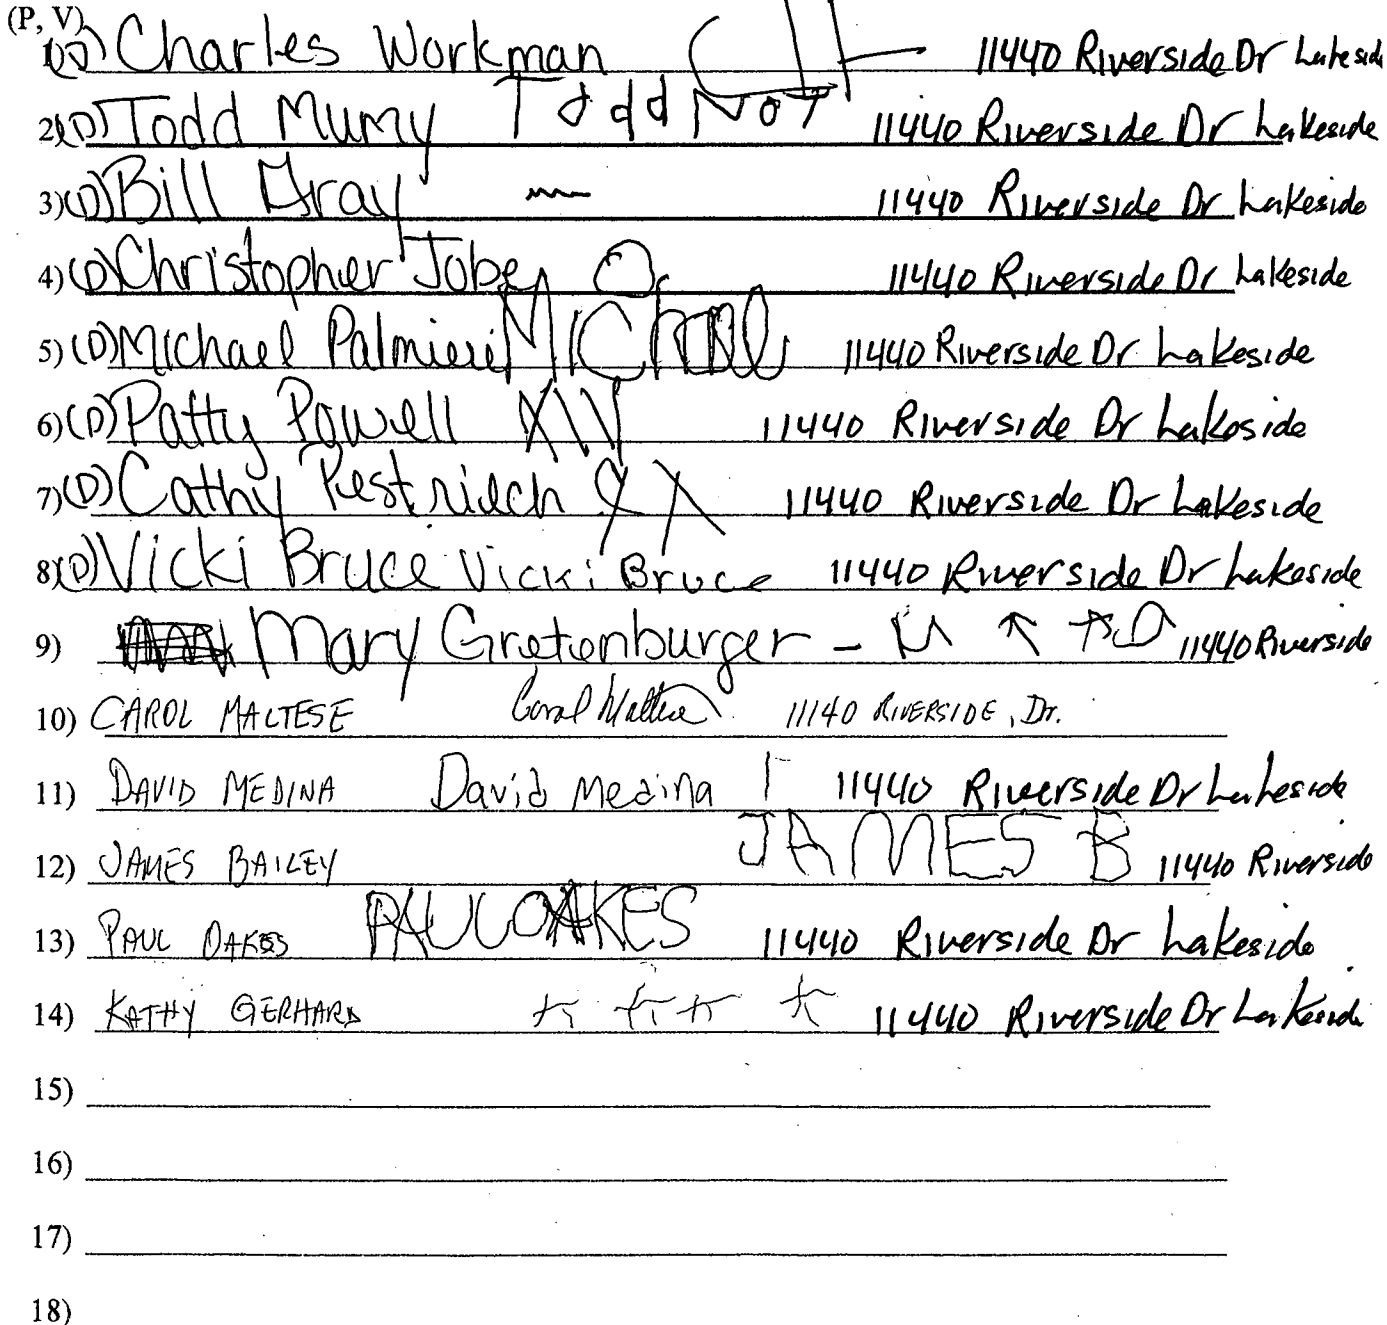 (P, V)
1) (D) Charles Workman 11440 Riverside Dr Lakeside
2) (D) Todd Mumy Todd Not 11440 Riverside Dr Lakeside
3) (D) Bill Gray 11440 Riverside Dr Lakeside
4) (D) Christopher Jobe 11440 Riverside Dr Lakeside
5) (D) Michael Palmieri Michael 11440 Riverside Dr Lakeside
6) (D) Patty Powell XIV 11440 Riverside Dr Lakeside
7) (D) Cathy 11440 Riverside Dr Lakeside
8) (D) Vicki Bruce Vicki Bruce 11440 Riverside Dr Lakeside
9) Mary Gretenburger - 11440 Riverside
10) CAROL MALTESE Carol Maltese 11140 RIVERSIDE, Dr.
11) DAVID MEDINA David Medina 11440 Riverside Dr Lakeside
12) JAMES BAILEY JAMES B 11440 Riverside
13) PAUL OAKES PAUL OAKES 11440 Riverside Dr Lakeside
14) KATHY GERHARD 11440 Riverside Dr Lakeside
15)
16)
17)
18)